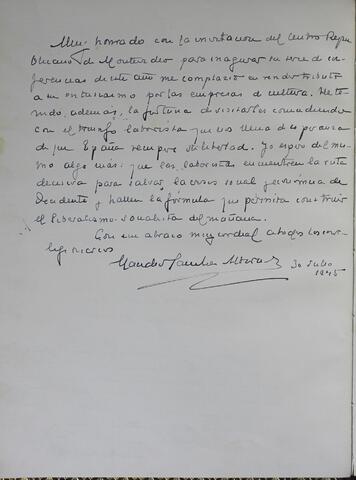 Muy honrado con la invitación del Centro Repu
blicano de Montevideo para inagurar su serie de con
ferencias de este año me complazco en rendir tributo
a su entusiasmo por las empresas de cultura. He te
nido, además, la fortuna de visitarles coincidiendo
con el triunfo laborista que nos llena de esperanza
de que España recupere su libertad. Yo espero del mis
mo algo más: que los laboristas encuentren la ruta
decisiva para salvar la crisis social y económica de
Occidente y hallen la fórmula que permita construir
el liberalismo socialista del mañana.
Con un abrazo muy cordial a todos los corre
ligionarios
30 Julio
1945